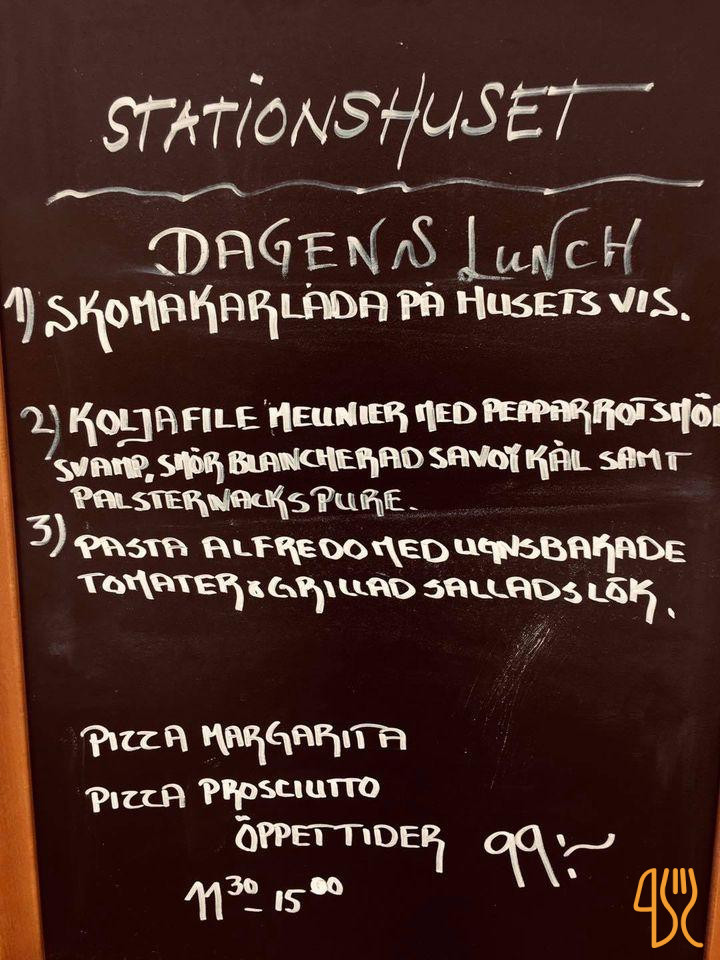 STATIONSHUSET
DAGENS LUNCH
1) SKOMAKARLÅDA PÅ HUSETS VIS.
2) KOLJAFILE MEUNIER MED PEPPARROTSMÖR
SVAMP, SMÖRBLANCHERAD SAVOYKÅL SAMT
PALSTERNACKSPURE.
3) PASTA ALFREDO MED UGNSBAKADE
TOMATER & GRILLAD SALLADSLÖK.
PIZZA MARGARITA
PIZZA PROSCIUTTO
ÖPPETTIDER 99:~
11 30 - 15 00